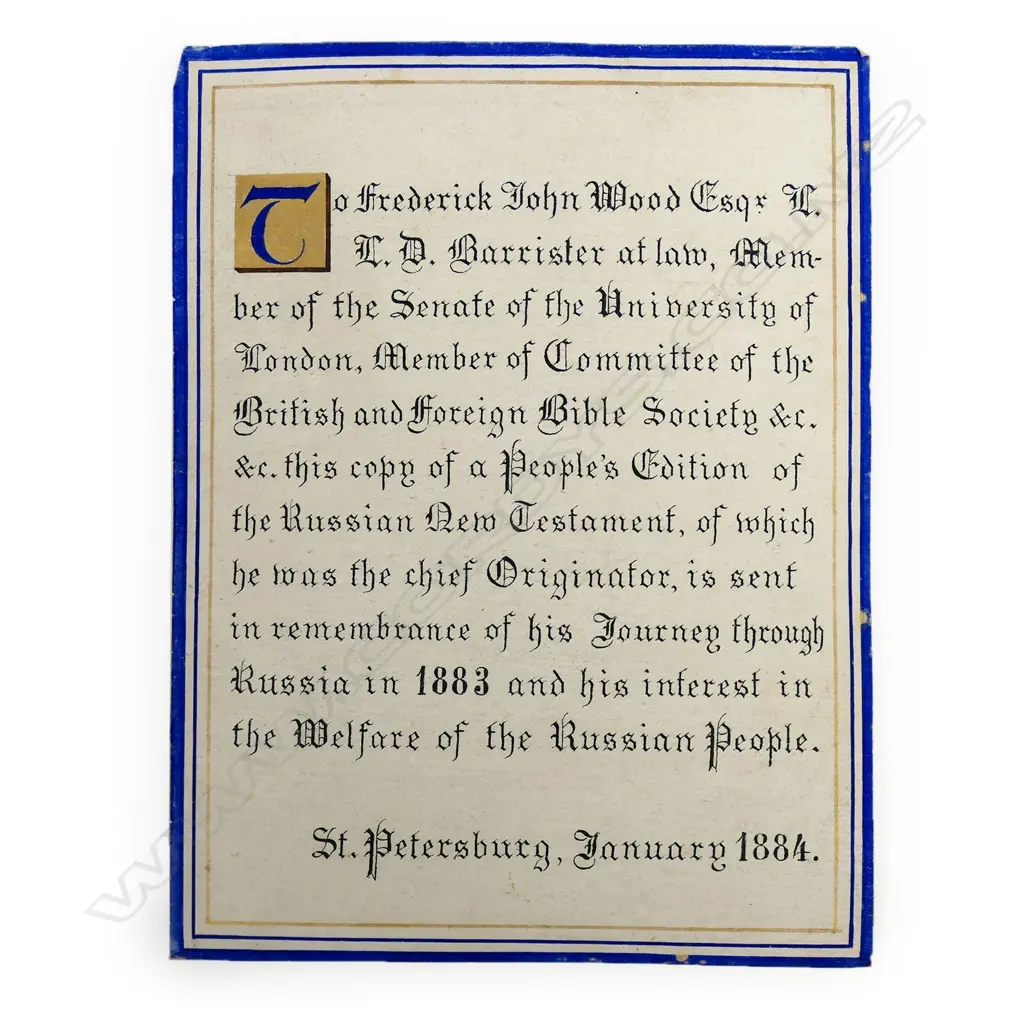 To Frederick John Wood Esqr L.
L. D. Barrister at law, Mem-
ber of the Senate of the University of
London, Member of Committee of the
British and Foreign Bible Society &c.
&c. this copy of a People's Edition of
the Russian New Testament, of which
he was the chief Originator, is sent
in remembrance of his Journey through
Russia in 1883 and his interest in
the Welfare of the Russian People.
St. Petersburg, January 1884.